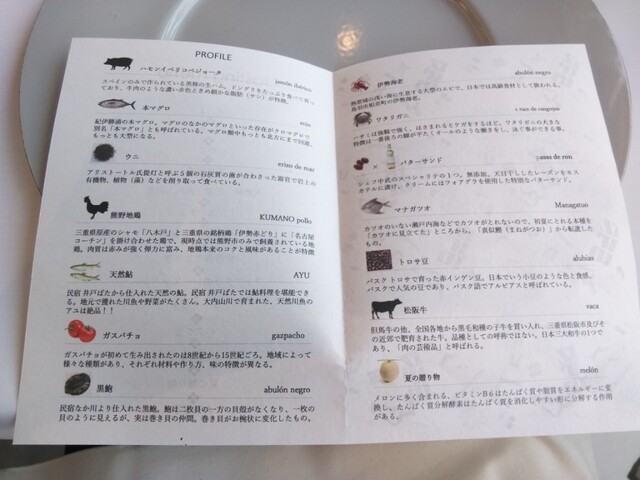 PROFILE
ハモンイベリコベジョータ
jamón ibérico
スペインのみで作られている黒豚の生ハム。ドングリをたっぷり食べて育って
おり、牛肉のような濃い赤色ときめ細かな脂肪（サシ）が特徴。
本マグロ
紀伊勝浦の本マグロ。マグロのなかのマグロといった存在がクロマグロで
別名「本マグロ」とも呼ばれている。マグロ類中もっとも北方にまで回遊、
もっとも大型になる。
ウニ
erizo de mar
アリストートル氏提灯と呼ぶ5個の石灰質の歯が合わさった器官で岩上の
有機物、植物（藻）などを削り取って食べている。
熊野地鶏
KUMANO pollo
三重県原産のシャモ「八木戸」と三重県の銘柄鶏「伊勢赤どり」に「名古屋
コーチン」を掛け合わせた鶏で、現時点では熊野市のみで飼養されている地
鶏。肉質は赤みが強く弾力に富み、地鶏本来のコクと風味があることが特徴
天然鮎
AYU
民宿 井戸ばたから仕入れた天然の鮎。民宿 井戸ばたでは鮎料理を堪能でき
る。地元で獲れた川魚や野菜がたくさん。大内山川で育まれた、天然川魚の
アユは絶品！！
ガスパチョ
gazpacho
ガスパチョが初めて生み出されたのは8世紀から15世紀ごろ。地域によって
様々な種類があり、それぞれ材料や作り方、味の特徴が異なる。
黒鮑
abulón negro
民宿なか川より仕入れた黒鮑。鮑は二枚貝の一方の貝殻がなくなり、一枚の
貝のように見えるが、実は巻き貝の仲間。巻き貝がお椀状に変化したもの。
伊勢海老
abulón negro
熱帯域の浅い海に生息する大型のエビで、日本では高級食材として扱われる。
ワタリガニ
ハサミは強靱で強く、はさまれるとケガをするほど。ワタリガニの大きな
特徴は一番後ろの脚が平たくオールのような働きをし、泳ぐ事ができる事。
バターサンド
pasas de ron
シェフ中武のスペシャリテの1つ。無添加、天日干ししたレーズンをモス
カテルに漬け、クリームにはフォアグラを使用した特別なバターサンド。
マナガツオ
Managatuo
カツオのいない瀬戸内海などでカツオがとれないので、初夏にとれる本種を
「カツオに見立てた」ところから。「真似鰹（まねがつお）」から転訛した
もの。
トロサ豆
alubias
バスク トロサで育った赤インゲン豆。日本でいう小豆のような色と食感。
バスクで人気の豆であり、バスク語でアルビアスと呼ばれている。
松阪牛
vaca
但馬牛の他、全国各地から黒毛和種の子牛を買い入れ、三重県松阪市及びそ
の近郊で肥育された牛。品種としての呼称ではない。日本三大和牛の1つで
あり、「肉の芸術品」と呼ばれる。
夏の贈り物
melón
メロンに多く含まれる、ビタミンB6はたんぱく質や脂質をエネルギーに変
換し、たんぱく質分解酵素はたんぱく質を消化しやすい形に分解する作用
がある。